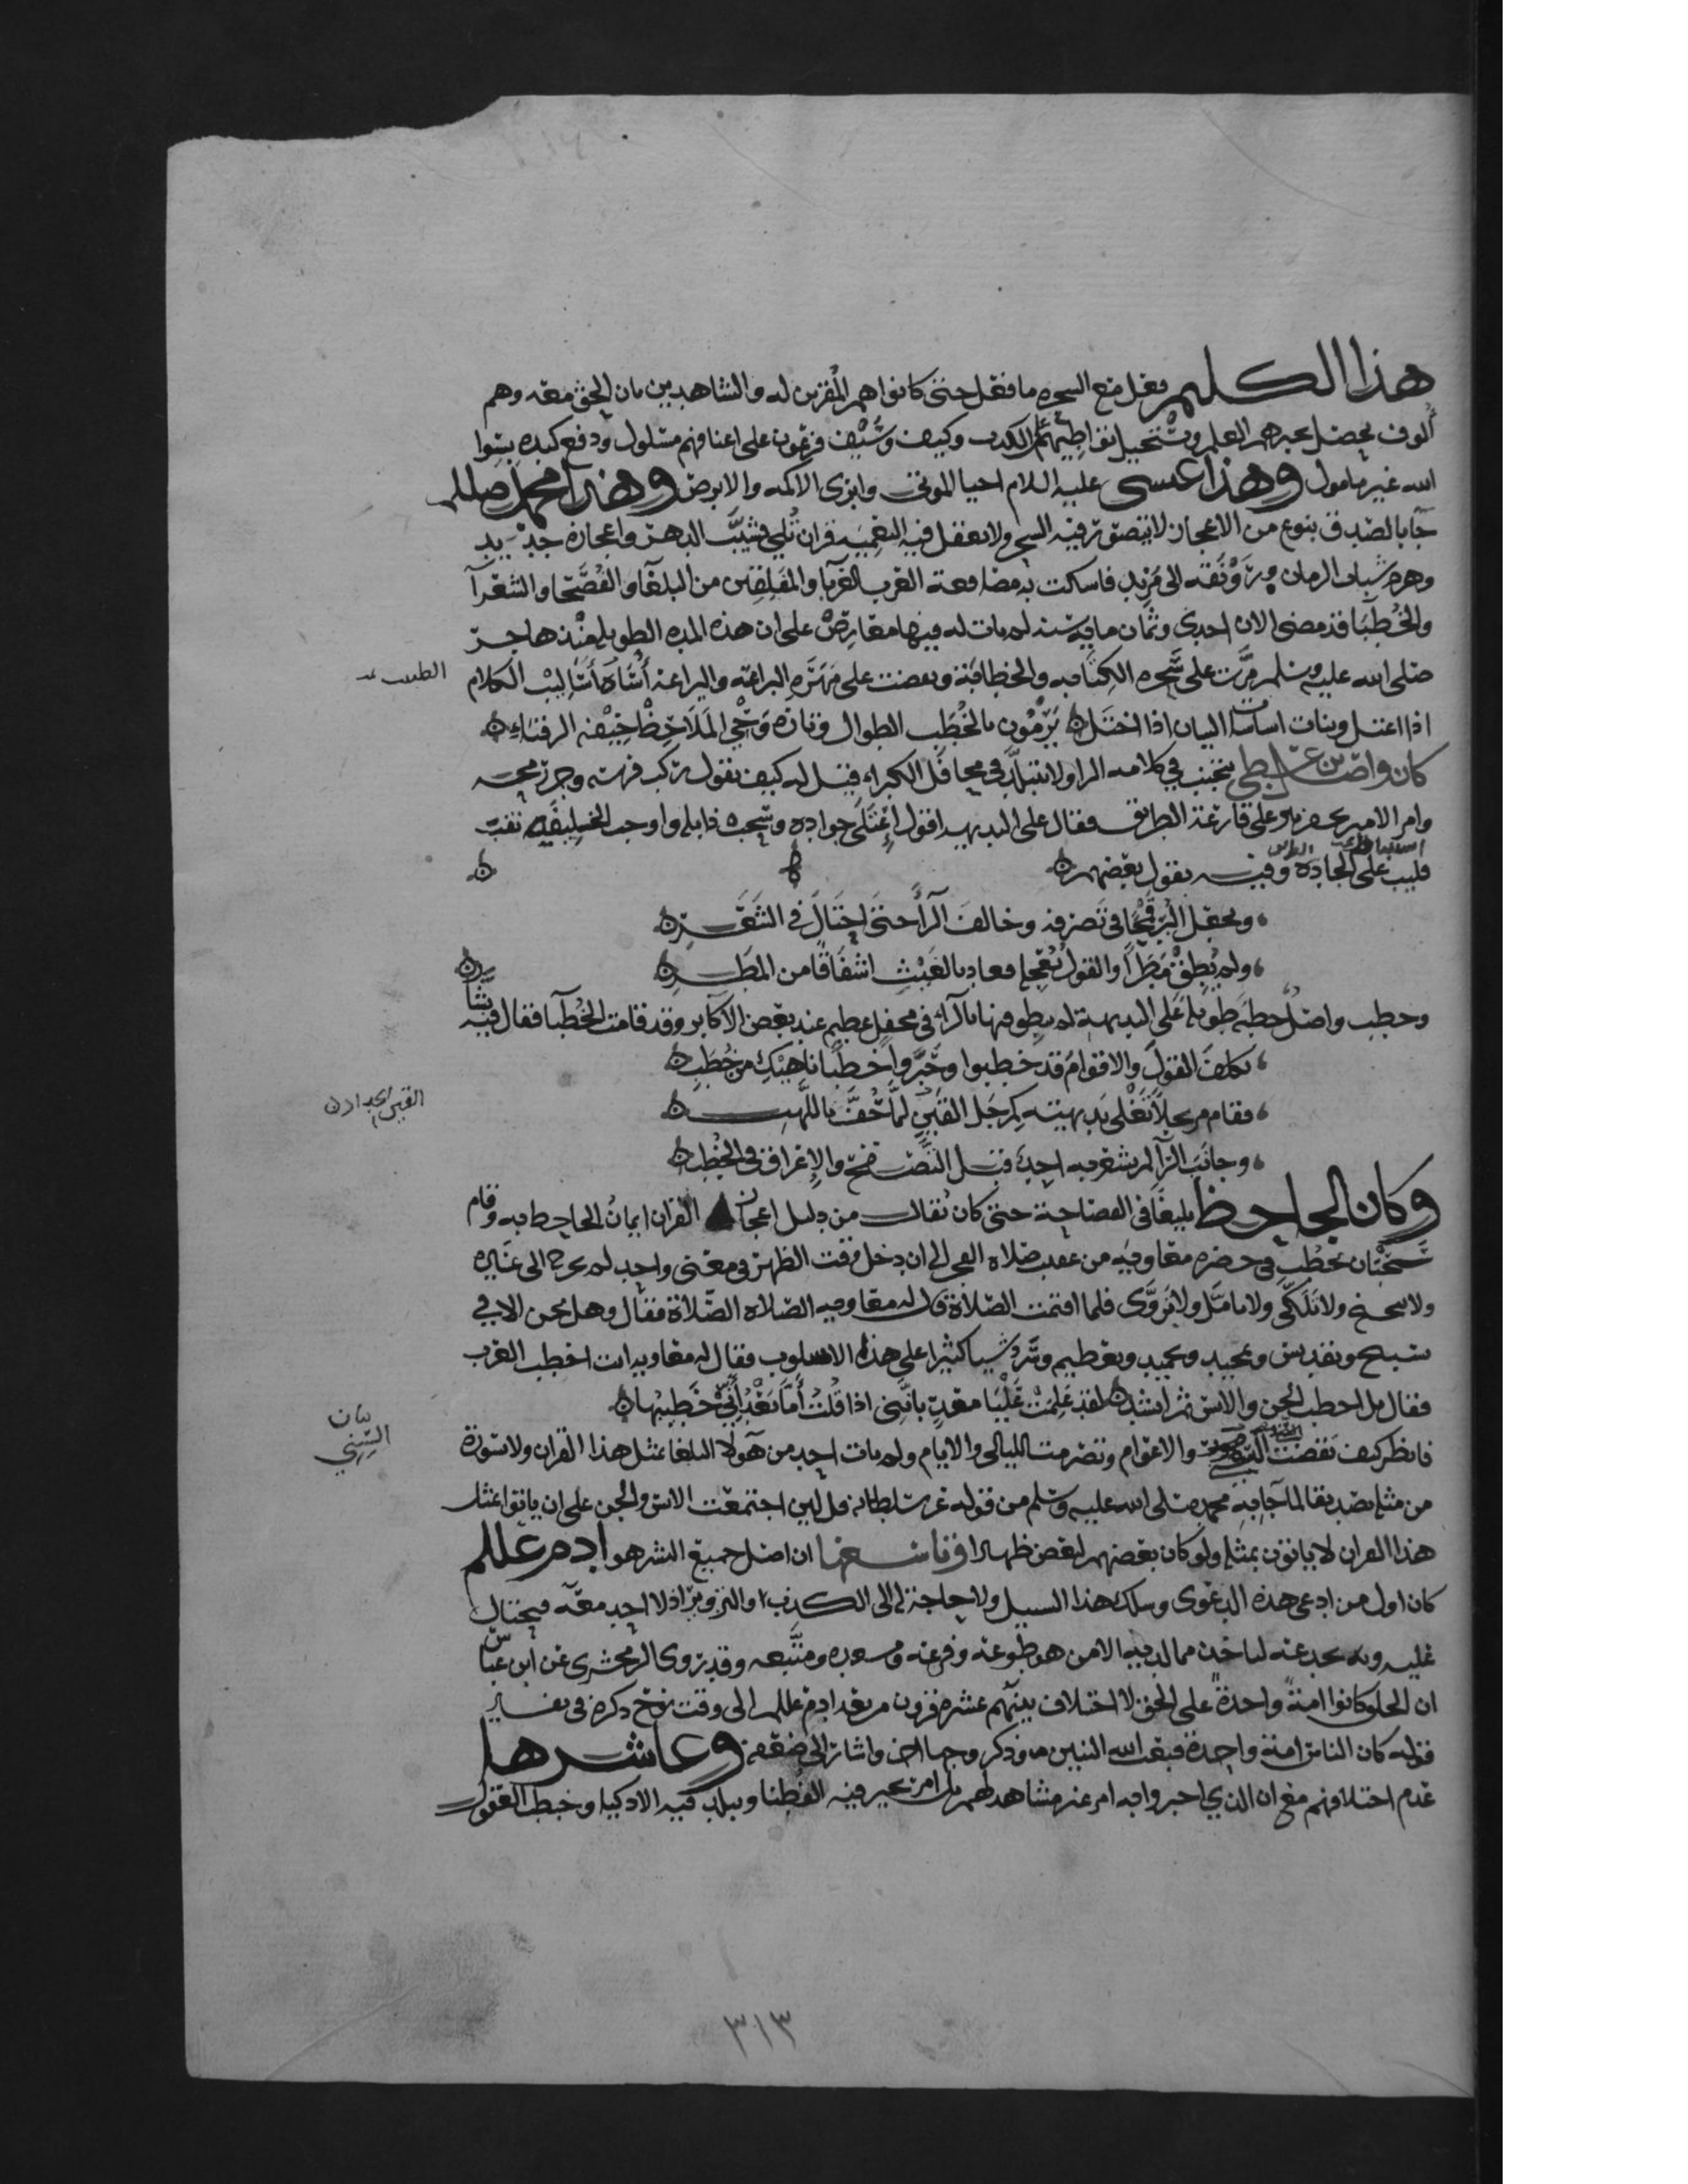 هذا الكليم فعل مع السحره ما فعل حتى كانوا هم المقرين له والشاهدين بان الحق معه وهم
ألوف يحصل بخبرهم العلم ويستحيل تواطيهم على الكذب وكيف وسيف فرعون على اعناقهم مسلول ودفع كيده بسوا
الله غير مامول وهذا عيسى عليه السلام احيا الموتى وابرى الاكمه والابرص وهذا محمد صللم
جآ بالصدق بنوع من الاعجاز لا يتصور فيه السحر ولا تعقل فيه التعميه قران تلي فشيَّب الدهر واعجازه جديد
وهرم شباب الزمان ورونقه الى مزيد فاسكت به مصاقعة العرب العربا والمفلقين من البلغآ والفصحا والشعرآ
والخطبآ قد مضى الان احدى وثمان مايه سنه لم يات له فيها معارض على ان هذه المده الطويله منذ هاجر
صلى الله عليه وسلم مرت على سحره الكتابه والخطابة وبعضت على مهره البراعه واليراعة أساة أساليب الكلام
اذا اعتل وبنات اساس البيان اذا اختل يرمون بالخطب الطوال وتارة وحي الملاحظ خيفة الرقباء
كان واصل بن عطا يتجنب في كلامه الرا ولا يتبلد في محافل الكبراء فقيل له كيف تقول ركب فرسه وجر رمحه
وامر الامير بحفر بير على قارعة الطريق فقال على البديهه اقول اعتلى جواده وسحب ذابله واوجب الخليفه نقب
قليب على الجاده وفيه يقول بعضهم
ويجعل البر قمحا في تصرفه وخالف الرآ حتى احتال في الشعر
ولم يطق مطرا والقول يعجله فعاد بالغيث اشفاقا من المطر
وخطب واصل خطبة طويلة على البديهة لم يطوفها بالرآ في محفل عظيم عند بعض الاكابر وقد قامت الخطبآ فقال فيه بشار
تكلف القول والاقوام قد خطبوا وحبروا خطبا ناهيك من خطب
فقام مرتجلا تغلي بديهته كمرجل القين لما حف باللهب
القين الحداد
وجانب الرآ لم يشعر به احد قبل التصفح والاغراق في الخطب
وكان الجاحظ بليغا في الفصاحة حتى كان يقال من دليل اعجاز القران ايمان الجاحظ به وقام
سحبان يخطب في حضره معاوية من عقب صلاه الفجر الى ان دخل وقت الظهر في معنى واحد لم يخرج الى غيره
ولا تنحنح ولا تلكى ولا تامل ولا تروى فلما اقتمت الصلاة قال له معاويه الصلاه الصلاة فقال وهل نحن الا في
تسبيح وتقديس وتمجيد وتحميد وتعظيم وسرد شيا كثيرا على هذا الاسلوب فقال له معاويه انت اخطب العرب
فقال بل اخطب الجن والانس ثم انشد لقد علمت عليا معد بانني اذا قلت أما بعد أني خطيبها
فانظر كيف تقضت السنين والاعوام وتصرمت الليالي والايام ولم يات احد من هولا البلغا بمثل هذا القران ولا سورة
من مثله تصديقا لما جآ به محمد صلى الله عليه وسلم من قوله عز سلطانه قل لين اجتمعت الانس والجن على ان ياتوا بمثل
هذا القران لا ياتون بمثله ولو كان بعضهم لبعض ظهيرا وتاسعها ان اصل جميع البشر هو ادم عللم
كان اول من ادعى هذه الدعوى وسلك هذا السبيل ولا حاجة له الى الكذب والتزوير اذ لا احد معه فيحتال
عليه وبه يخدعه لياخذ مما لديه الا من هو طوعه وفرعه ومتبعه وقد روى الزمخشرى عن ابن عباس
ان الخلق كانوا امة واحدة على الحق لا اختلاف بينهم عشره قرون من بعد ادم عللم الى وقت نوح ذكره في تفسير
قوله كان الناس امة واحدة فبعث الله النبيين وذكر وجها اخر واشار الى ضعفه وعاشرها
عدم اختلافهم مع ان الذي اخبروا به امر غير مشاهد لهم بل امر تحير فيه الفطنا ويبلد فيه الاذكيا وخبط العقول
٣١٣